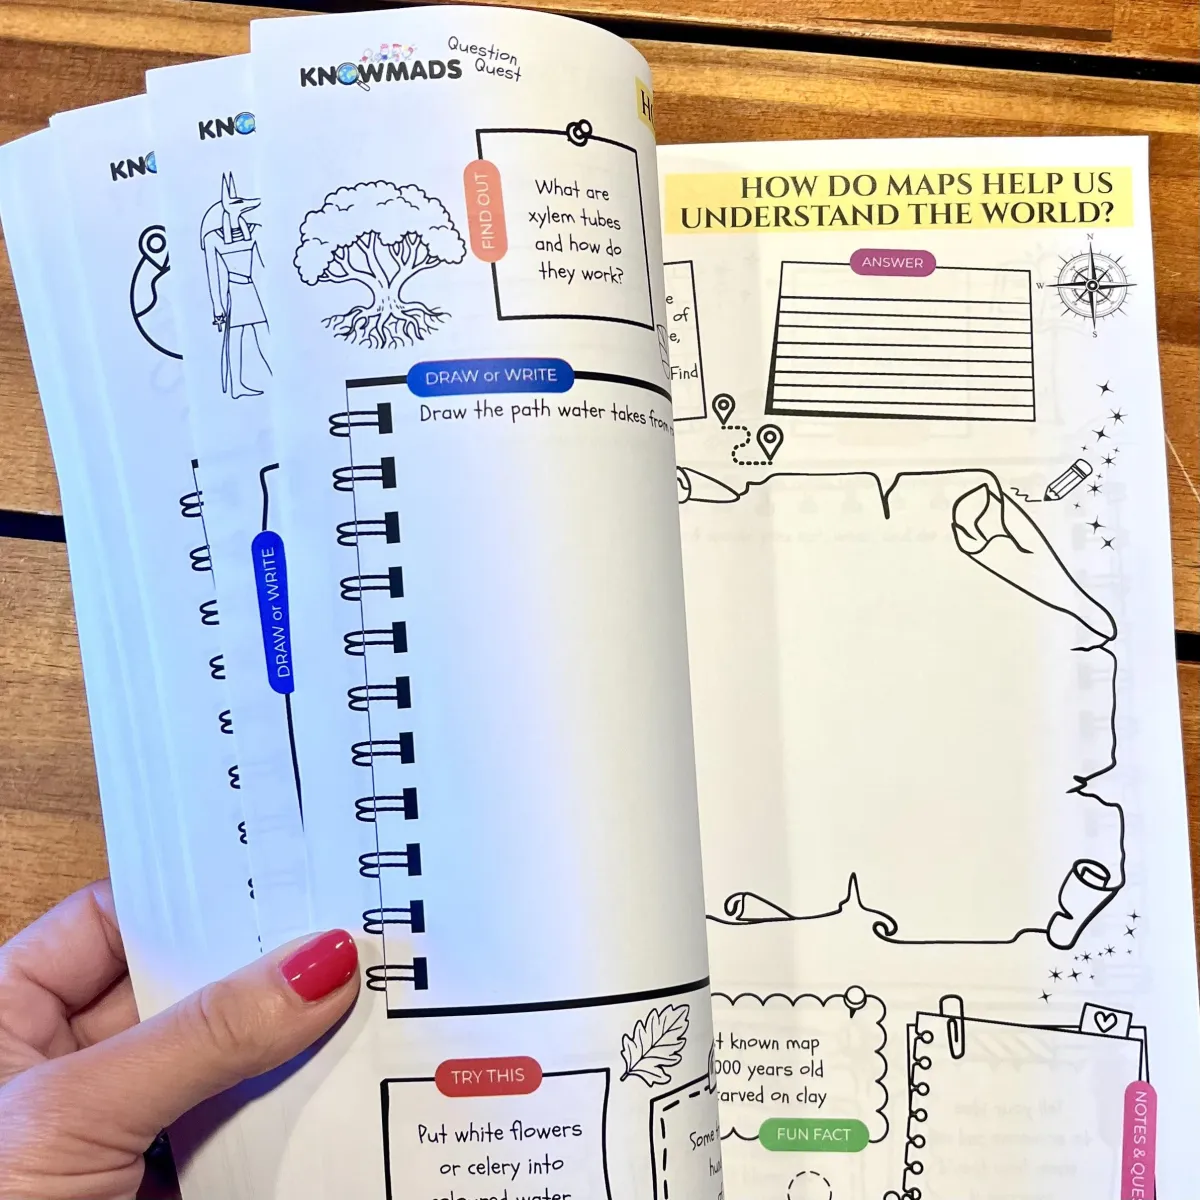 KNOWMADS
Question
Quest
FIND OUT
What are
xylem tubes
and how do
they work?
DRAW or WRITE
Draw the path water takes from
TRY THIS
Put white flowers
or celery into
coloured water
Some
KN
DRAW or WRITE
KN
HOW DO MAPS HELP US
UNDERSTAND THE WORLD?
ANSWER
N
W
S
of
Find
known map
000 years old
carved on clay
FUN FACT
NOTES & QUE